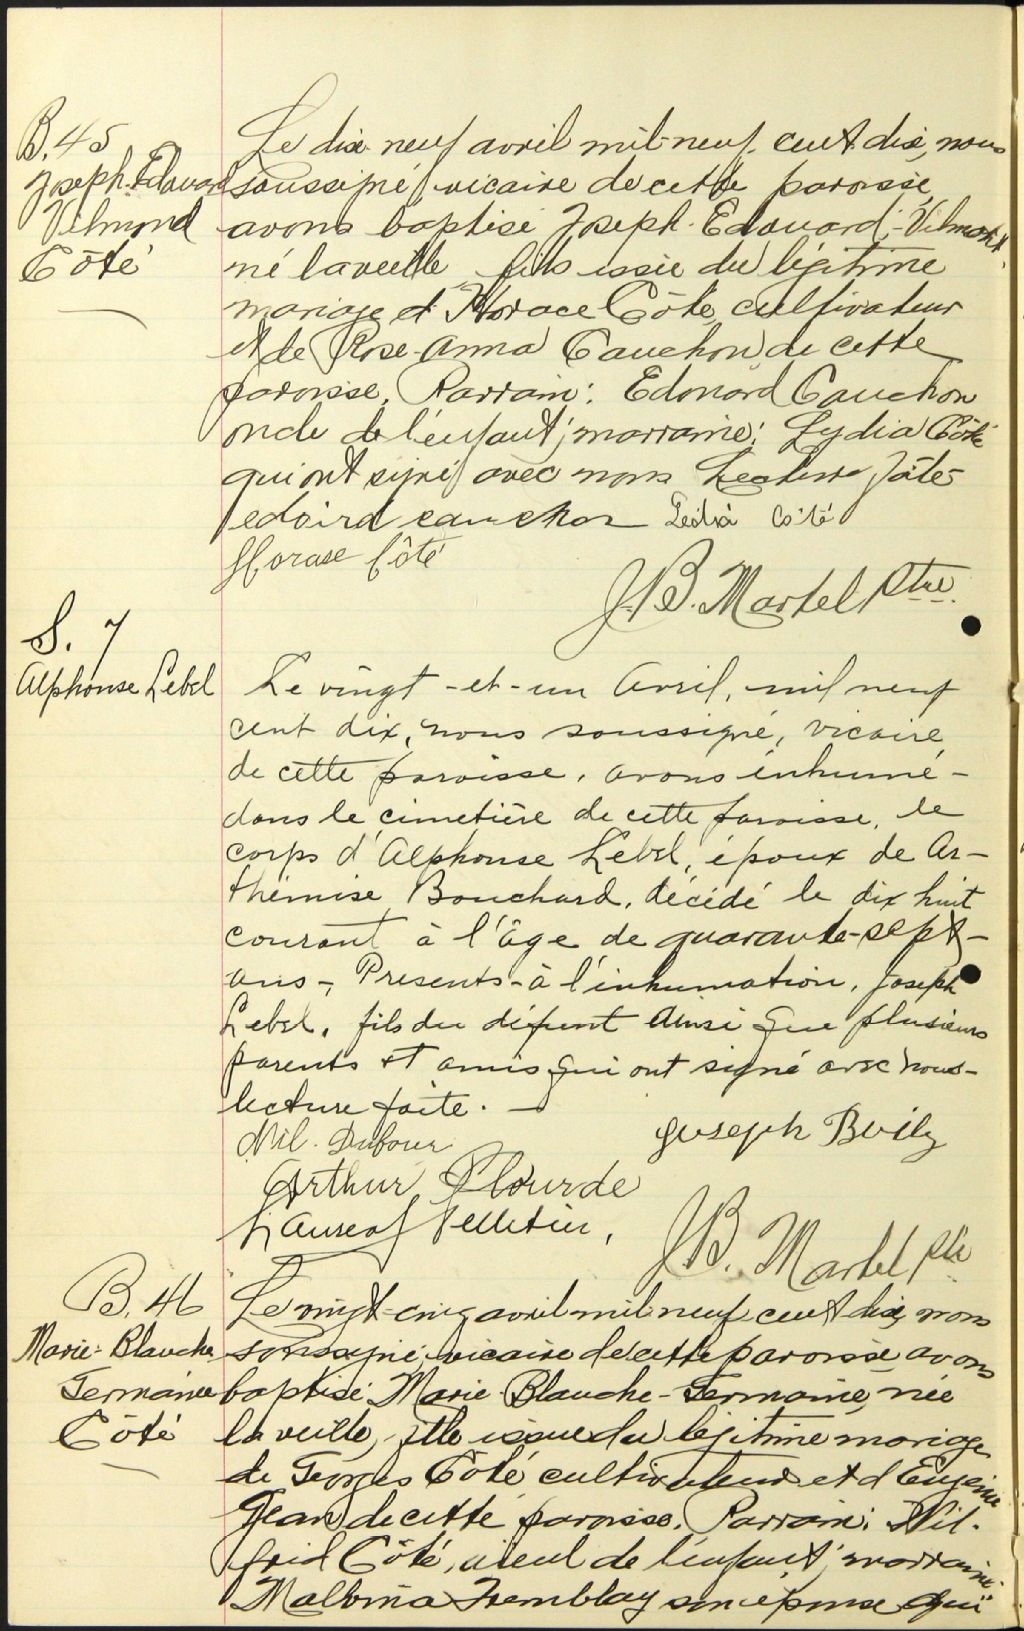 B. 45
Joseph-Edouard
Vilmond
Côté
Le dix-neuf avril mil-neuf cent dix, nous
soussigné, vicaire de cette paroisse,
avons baptisé Joseph-Edouard-Vilmont,
né la veille, fils issu du légitime
mariage d'Horace Côté, cultivateur
et de Rose-Anna Cauchon de cette
paroisse. Parrain: Edouard Cauchon
oncle de l'enfant; marraine: Lydia Côté
qui ont signé avec nous Lecture faite
edoird cauchon Côté
Horase Côté
J.B. Martel Ptre.
S. 7
Alphonse Lebel
Le vingt-et-un Avril, mil neuf
cent dix, nous soussigné, vicaire,
de cette paroisse, avons inhumé-
dans le cimetière de cette paroisse, le
corps d'Alphonse Lebel, époux de Ar-
thémise Bouchard, décédé le dix huit
courant à l'âge de quarante-sept-
ans-, Presents-à l'inhumation, Joseph
Lebel, fils du défunt Ainsi que plusieurs
parents et amis qui ont signé avec nous-
lecture faite. -
Nil. Dufour
Joseph Boily
Arthur Plourde
Laureat Pelletier,
J.B. Martel Ptr
B. 46
Marie-Blanche
Germaine
Côté
Le vingt-cinq avril mil neuf cent dix, nous
soussigné, vicaire de cette paroisse avons
baptisé Marie-Blanche-Germaine, née
la veille, fille issue du légitime mariage
de Georges Côté cultivateur et d'Eugénie
Jean de cette paroisse. Parrain: Wil-
frid Côté, aïeul de l'enfant; marraine:
Malvina Tremblay son épouse qui